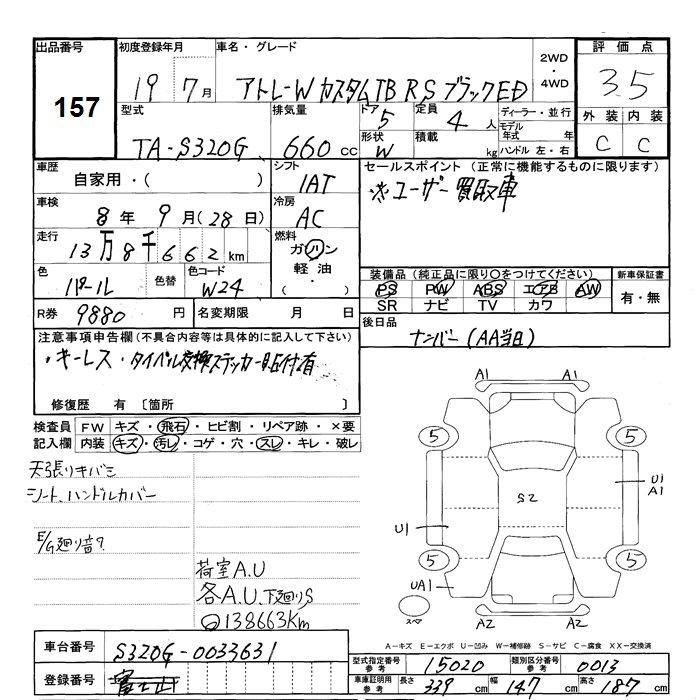 出品番号 初度登録年月 車名・グレード 2WD・4WD 評価点
157 19 7月 アトレーW カスタムTB RS ブラックED 3.5
型式 排気量 ドア 5 定員 4人 ディーラー・並行 外装 内装
TA-S320G 660cc 形状 W 積載 kg モデル年式 年 C C
ハンドル 左・右
車歴 シフト セールスポイント (正常に機能するものに限ります)
自家用・( ) IAT ※ユーザー買取車
車検 冷房
8年 9月(28日) AC
走行 燃料
13万8千662km ガソリン・軽油・( )
装備品 (純正品に限り〇をつけてください) 新車保証書
色 色替 色コード PS PW ABS エアB AW 有・無
パール W24 SR ナビ TV カワ
R券 9880円 名変期限 月 日 後日品
ナンバー(AA当日)
注意事項申告欄(不具合内容等は具体的に記入して下さい)
・キーレス・タイベル交換ステッカー貼付有
修復歴 有 〔箇所 〕
検査員 FW キズ・飛石・ヒビ割・リペア跡・×要
記入欄 内装 キズ・汚レ・コゲ・穴・スレ・キレ・破レ
A1 A1
5 5
天張りキバミ
シート、ハンドルカバー
S2 U1
A1
U1
E/G廻り音?
5 5
荷室A.U
UA1
各A.U、下廻りS
スペ
A2 A2
138663Km
A-キズ E-エクボ U-凹み W-補修跡 S-サビ C-腐食 XX-交換済
車台番号 S320G-0033631
型式指定番号 参考 15020 類別区分番号 参考 0013
登録番号
車庫証明用 参考 長さ 339cm 幅 147cm 高さ 187cm